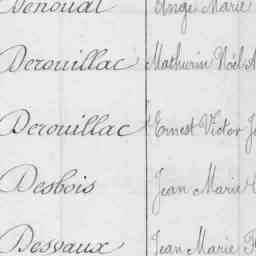 Denoual Ange Marie
Derouillac Mathurin Noël
Derouillac Ernest Victor
Desbois Jean Marie
Dessaux Jean Marie